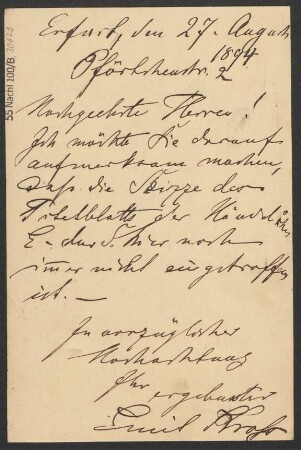 55 Nachl 100/B,
Erfurt, den 27. August
1894
Pförtchenstr. 2
Hochgeehrte Herren!
Ich möchte Sie darauf
aufmerksam machen,
daß die Skizze des
Titelblatts der Händel
E-dur S. hier noch
immer nicht eingetroffen
ist. —
In vorzüglicher
Hochachtung
Ihr
ergebenster
Emil